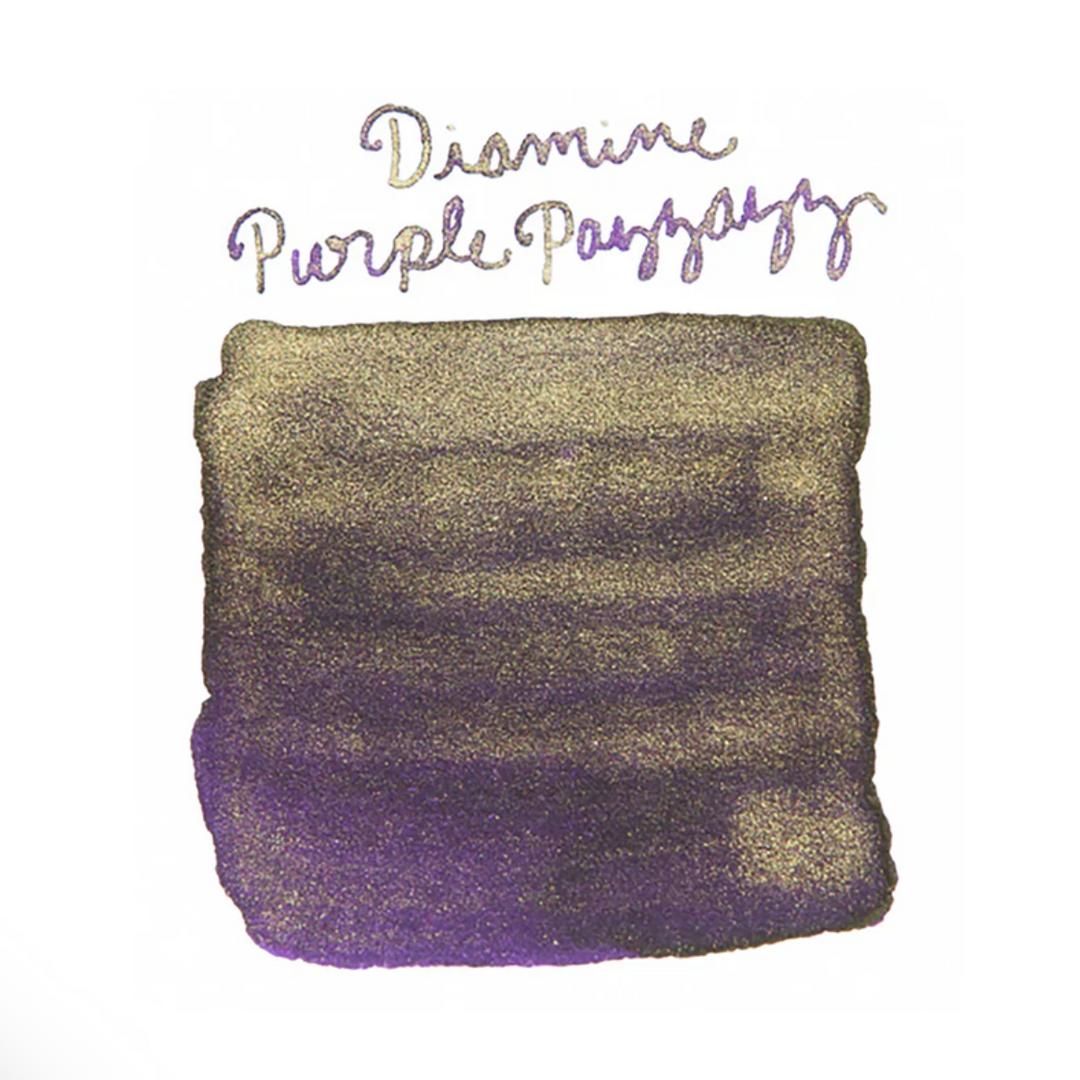 Diamine
Purple Pazzazz